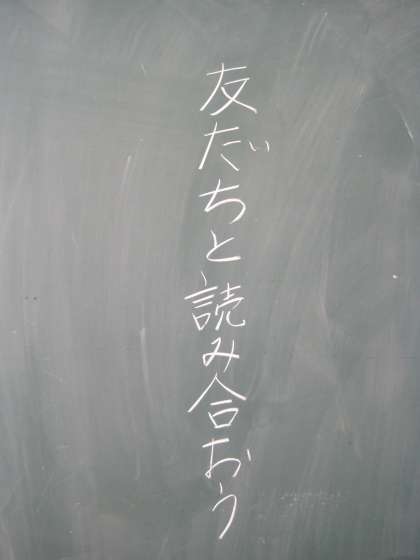 友だちと読み合おう